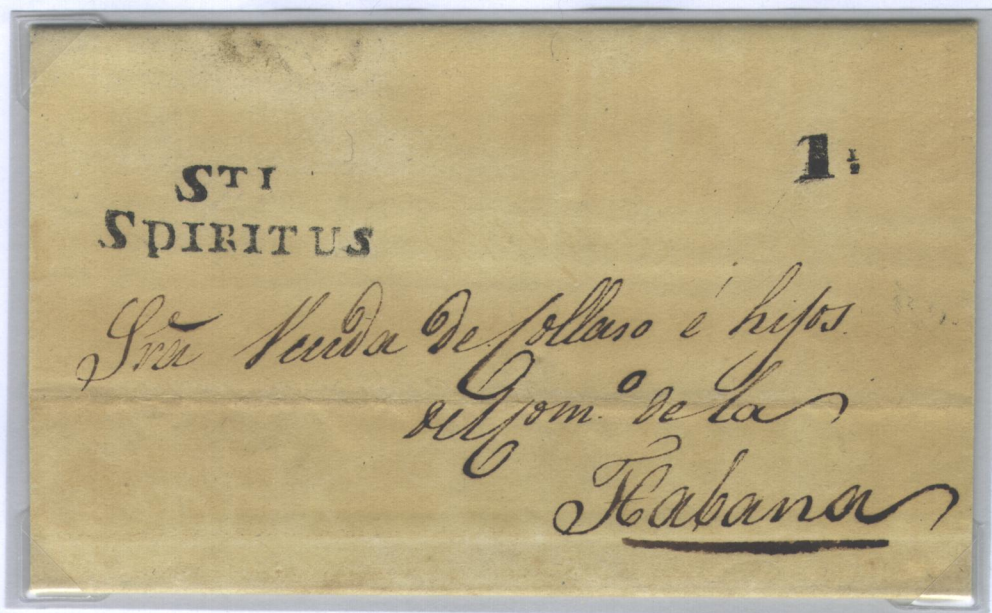 STI
SPIRITUS
1 1/2
Srã Viuda de Collaso é hijos.
del Com.º de la
Habana